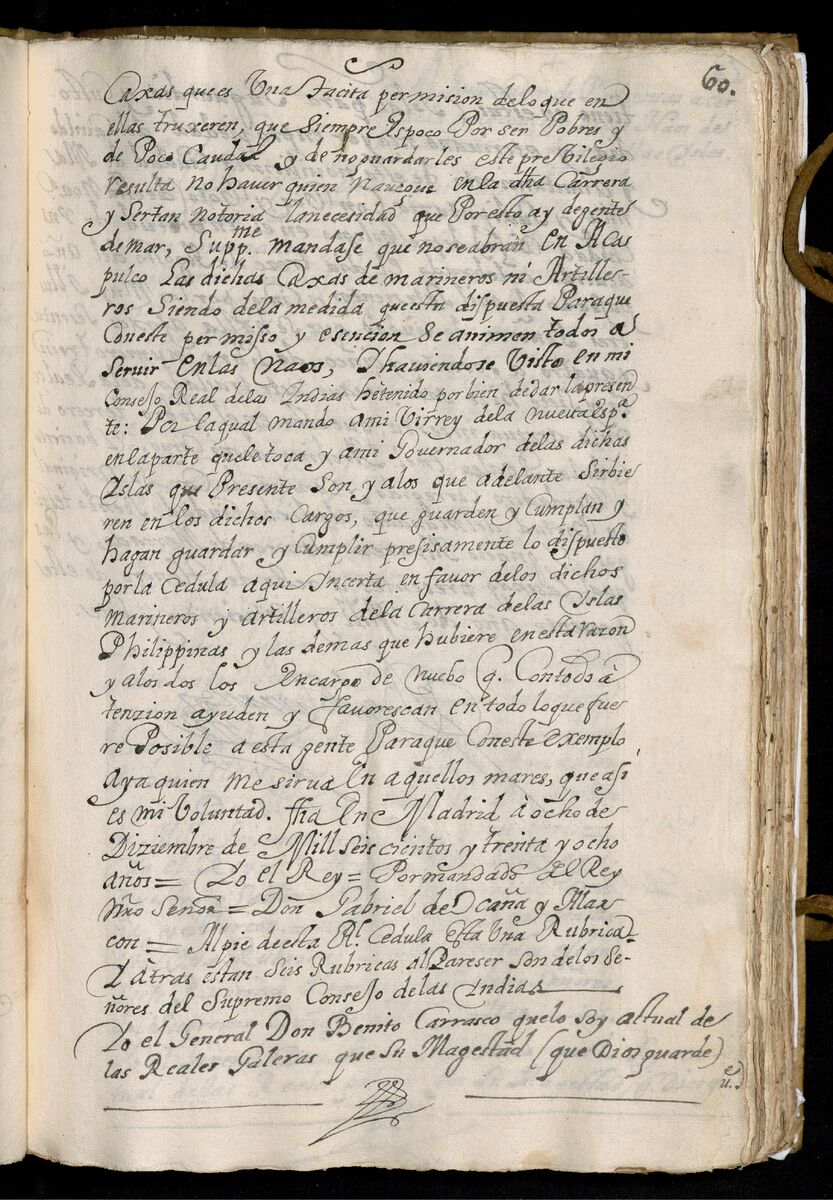 60.
Caxas que es Una tacita permision delo que en
ellas truxeren, que siempre es poco Por ser Pobres y
de Poco Caudal y de no guardarles este prebilegio
resulta no haver quien navegue en la dha Carrera
y Sertan notoria la necesidad que Por esto ay de gente
de mar, Supp.me mandase que no se abran en Aca
pulco Las dichas Caxas de marineros ni Artille-
ros Siendo dela medida que esta dispuesta Para que
Con este permisso y esencion se animen todos a
Servir en las Naos, Y haviendose Visto en mi
Consejo Real delas Indias he tenido por bien de dar la presen
te: Por la qual mando ami Virrey dela nueva Esp.a
en la parte que le toca y ami Governador delas dichas
Islas que Presente son y alos que adelante Sirbie
ren en los dichos Cargos, que guarden y Cumplan y
hagan guardar y Cumplir presisamente lo dispuesto
por la Cedula aqui Incerta en favor delos dichos
marineros y artilleros dela Carrera delas Islas
Philippinas y las demas que hubiere en esta razon
y alos dos los Encargo de nuebo q. Con toda a
tenzion ayuden y favorescan en todo lo que fue
re Posible a esta gente Para que Con este exemplo
aya quien me sirva En aquellos mares, que asi
es mi Voluntad. ffha En Madrid à ocho de
Diziembre de Mill seis cientos y treinta y ocho
años = Yo el Rey = Por mandado del Rey
Nro Señor = Don Gabriel de Ocaña y Alar
con = Al pie de esta Rl. Cedula esta Una Rubrica
Y atras estan Seis Rubricas al Pareser son delos Se-
ñores del Supremo Consejo delas Indias
Yo el General Don Benito Carrasco que lo soy actual de
las Reales Galeras que Su Magestad (que Dios guarde)